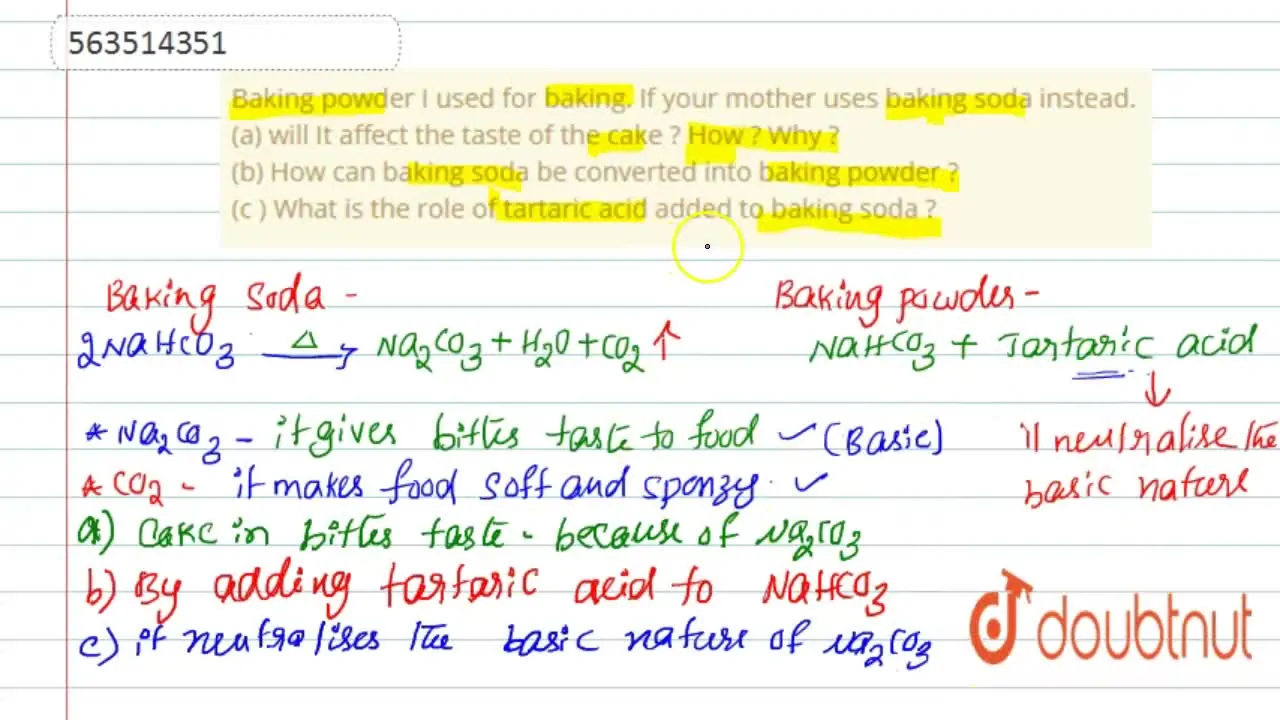 563514351
Baking powder I used for baking. If your mother uses baking soda instead.
(a) will It affect the taste of the cake ? How ? Why ?
(b) How can baking soda be converted into baking powder ?
(c ) What is the role of tartaric acid added to baking soda ?
Baking Soda -
2NaHCO3 Δ → Na2CO3 + H2O + CO2 ↑
* Na2CO3 - it gives bitter taste to food ✓ (Basic)
* CO2 - it makes food soft and sponzy. ✓
Baking powder -
NaHCO3 + Tartaric acid
↓
it neutralise the
basic nature
a) Cake in bitter taste - because of Na2CO3
b) By adding tartaric acid to NaHCO3
c) it neutralises the basic nature of Na2CO3
doubtnut